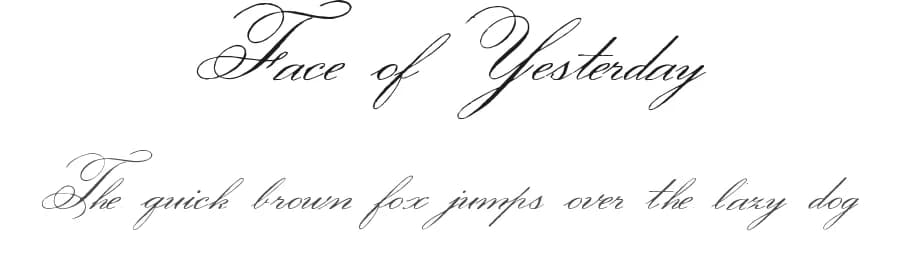 Face of Yesterday
The quick brown fox jumps over the lazy dog